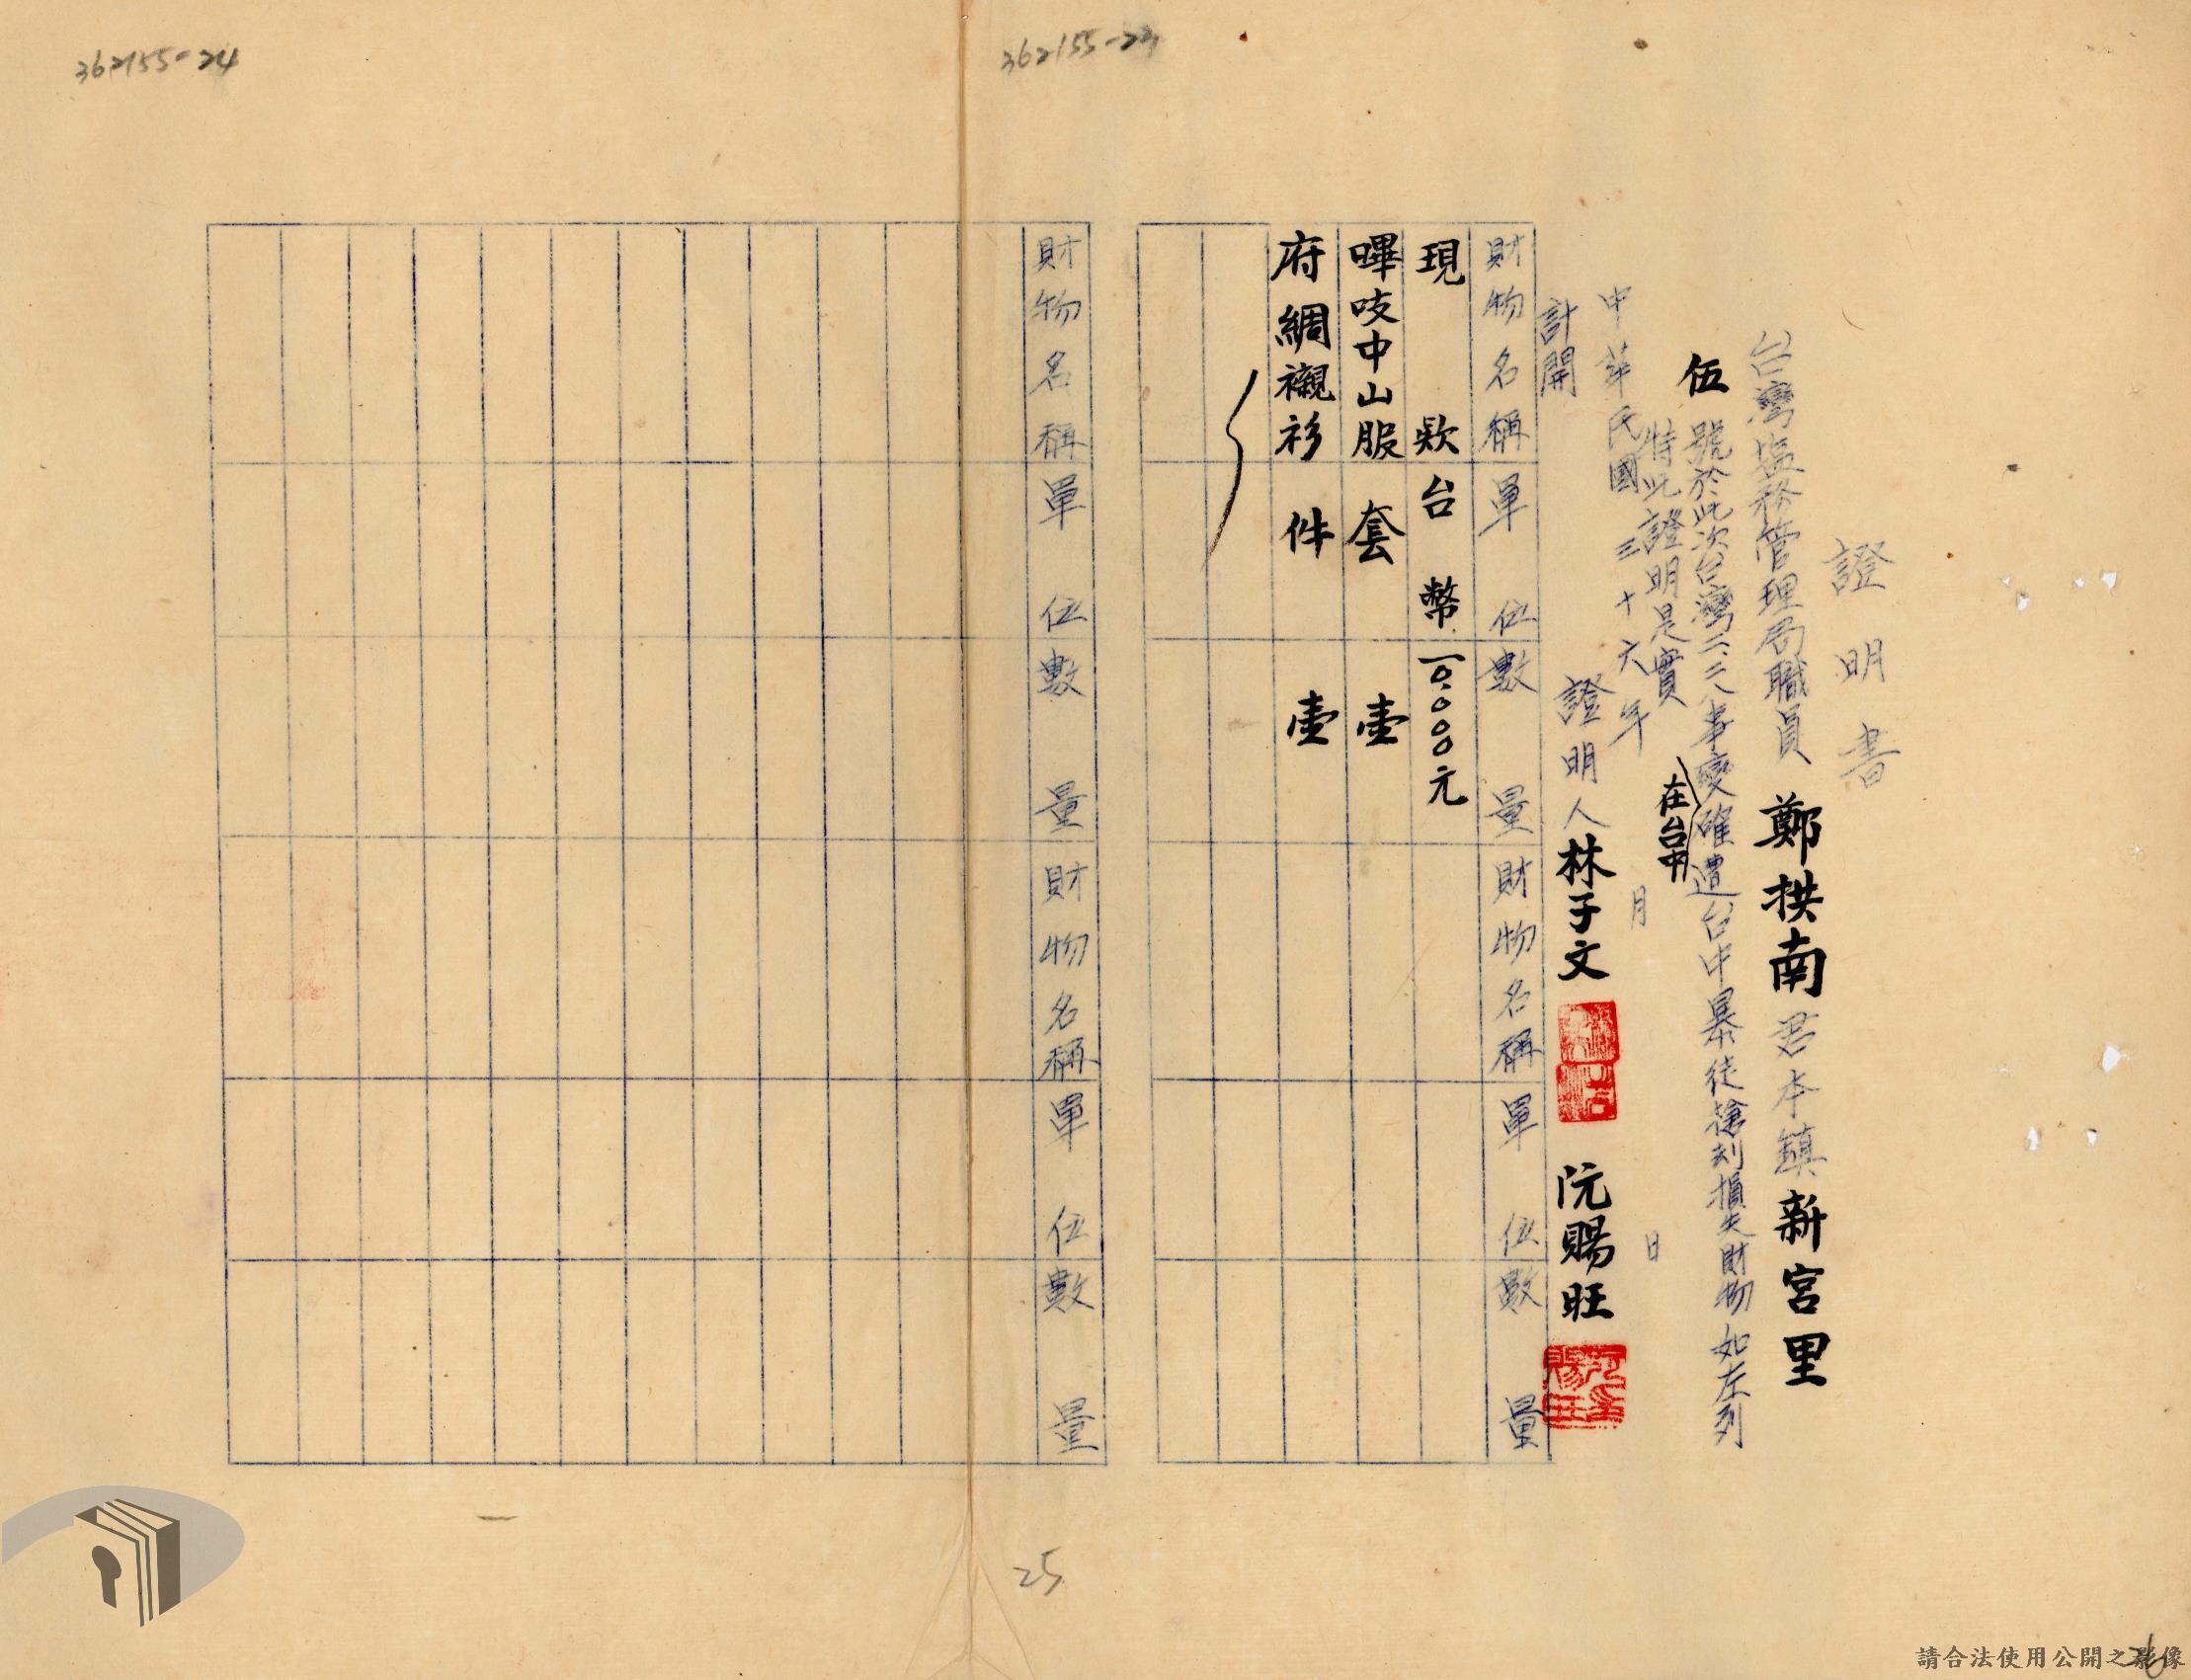 362155-24
362155-23
證明書
台灣塩務管理局職員鄭拱南君本鎮新宮里
伍號於此次台灣二.二八事變確遭台中暴徒搶刦損失財物如左列
在台中
特此證明是實
中華民國三十六年 月 日
證明人林子文 阮賜旺
計開
財物名稱 單位 數量 財物名稱 單位 數量
現款 台幣 一〇.〇〇〇元
嗶吱中山服 套 壹
府綢襯衫 件 壹
財物名稱 單位 數量 財物名稱 單位 數量
25
請合法使用公開之影像